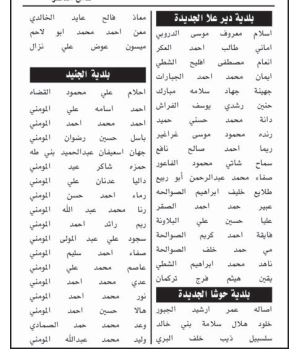 بلدية دير علا الجديدة
اسلام معروف موسى الدروبي
اماني طالب احمد العكر
انعام مصطفى افليح الشطي
ايمان محمد احمد الجبارات
جهينة جهاد سلامه مبارك
حنين رشدي يوسف الفراش
دانة محمد حسني حميد
رنده محمود موسى غراغير
ريما احمد صالح نافع
سماح شاتي محمود الفاعور
صفاء محمد عبدالرحمن أبو ربيع
طلايع خليف ابراهيم الصوالحه
عبير حمد احمد الصقر
عليا حسين علي البلاونة
فايقة احمد كريم الصوالحة
مي حمد خلف الصوالحة
ناهد محمد ابراهيم الشطي
يقين هيثم فرج تركمان
بلدية حوشا الجديدة
اصاله عمر ارشيد الجبور
خلود هلال سلامة بني خالد
سلسبيل ذيب خلف البري
معاذ فالح عايد الخالدي
معن احمد محمد ابو لاحم
ميسون عوض علي نزال
بلدية الجنيد
احلام علي محمود القضاه
احمد اسامه علي المومني
احمد محمد احمد المومني
باسل حسين رضوان المومني
جهان اسعيفان عبدالحميد بني طه
حمزه شاكر عبد المومني
داليا عدنان علي المومني
رماء احمد حسن المومني
رنا محمد عبد الله المومني
ريم رائد احمد المومني
سجود علي عبد المولى المومني
صفاء احمد سليم المومني
عاصم محمد علي المومني
عدي محمد احمد المومني
نور محمد احمد المومني
هالا حسين احمد المومني
وعد محمد حمد الصمادي
وليد محمد عبدالله المومني